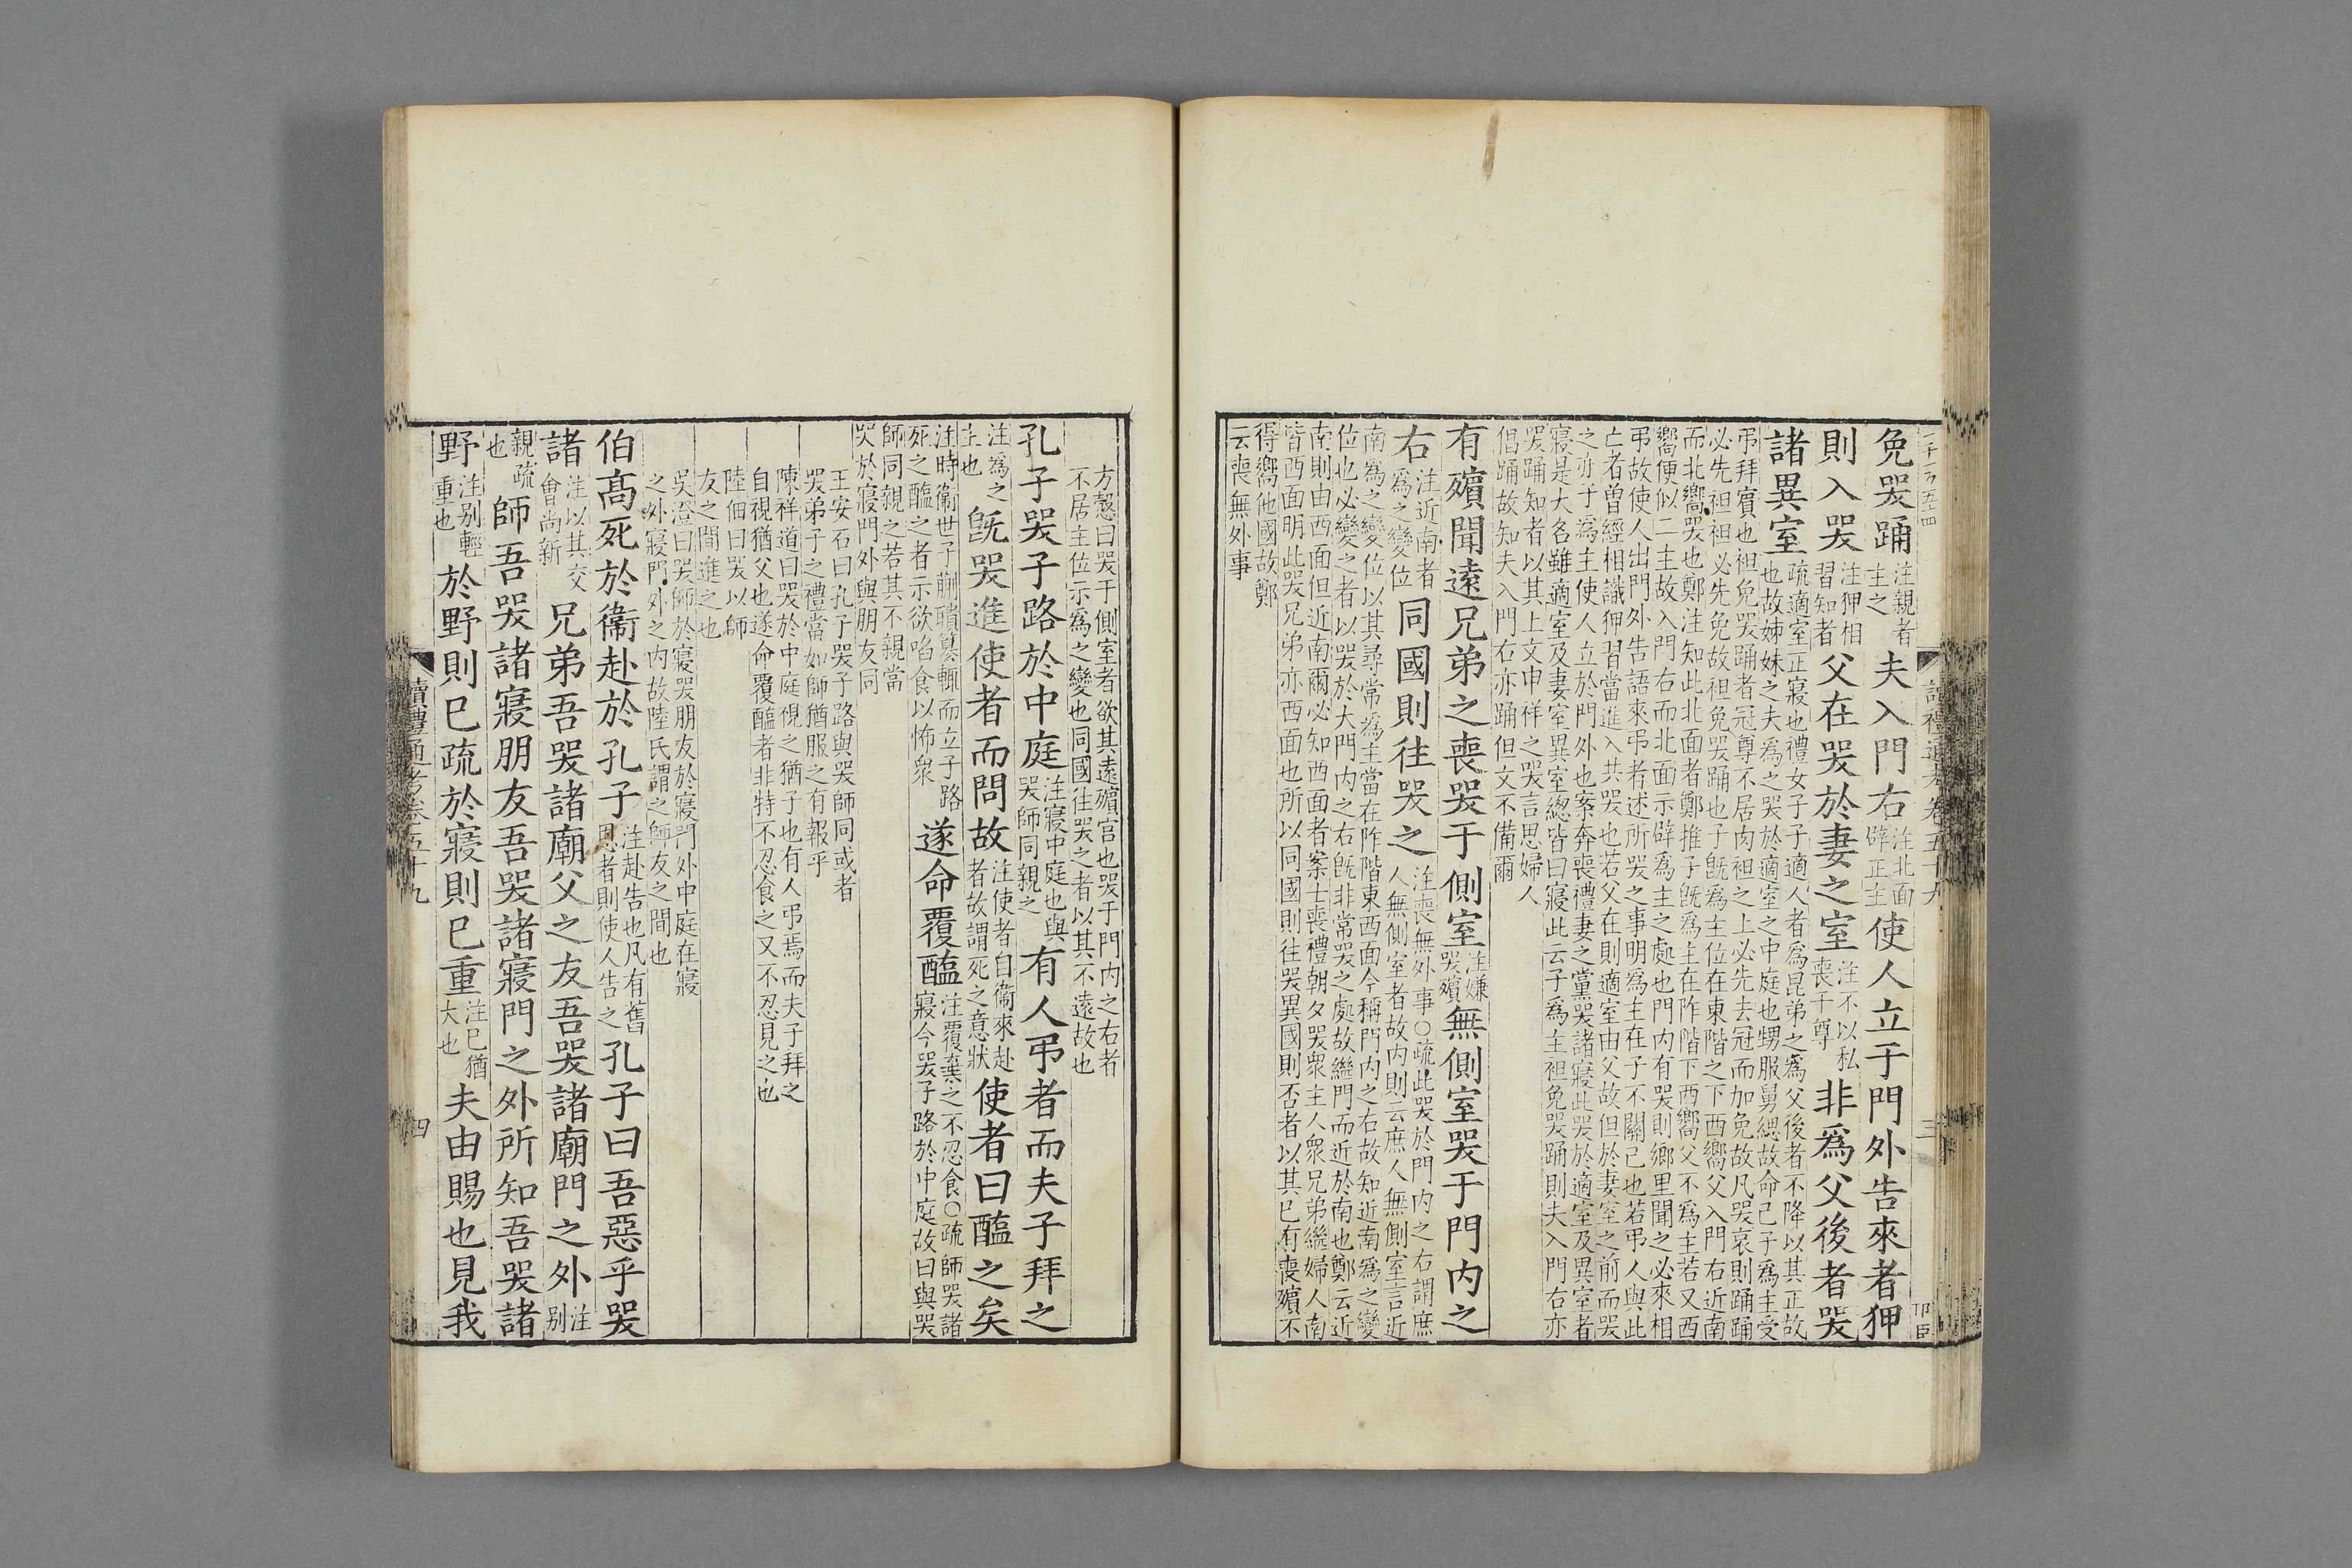 免哭踊注親者主之夫入門右注北面辟正主使人立于門外告來者狎
則入哭注狎相習知者父在哭於妻之室注不以私喪干尊非爲父後者哭
諸異室疏適室正寢也禮女子子適人者爲昆弟之爲父後者不降以其正故也故姊妹之夫爲之哭於適室之中庭也甥服舅緦故命己子爲主受
弔拜賓也袒免哭踊者冠尊不居肉袒之上必先去冠而加免故凡哭哀則踊踊必先袒袒必先免故袒免哭踊也子既爲主位在東階之下西嚮父入門右近南
而北嚮哭也鄭注知此北面者鄭推子既爲主在阼階下西嚮父不爲主若又西嚮便似二主故入門右而北面示辟爲主之處也門內有哭則鄉里聞之必來相
弔故使人出門外告語來弔者述所哭之事明爲主在子不關己也若弔人與此亡者曾經相識狎習當進入共哭也若父在則適室由父故但於妻室之前而哭
之亦子爲主使人立於門外也案奔喪禮妻之黨哭諸寢此哭於適室及異室者寢是大名雖適室及妻室異室總皆曰寢此云子爲主袒免哭踊則夫入門右亦
哭踊知者以其上文申祥之哭言思婦人倡踊故知夫入門右亦踊但文不備爾
有殯聞遠兄弟之喪哭于側室注嫌哭殯無側室哭于門內之
右注近南者爲之變位同國則往哭之注喪無外事○疏此哭於門內之右謂庶人無側室者故內則云庶人無側室言近
南爲之變位以其尋常爲主當在阼階東西面今稱門內之右故知近南爲之變位也必變之者以哭於大門內之右既非常哭之處故繼門而近於南也鄭云近
南則由西面但近南爾必知西面者案士喪禮朝夕哭衆主人衆兄弟繼婦人南皆西面明此哭兄弟亦西面也所以同國則往哭異國則否者以其已有喪殯不
得嚮他國故鄭云喪無外事
方愨曰哭于側室者欲其遠殯宮也哭于門內之右者不居主位示爲之變也同國往哭之者以其不遠故也
孔子哭子路於中庭注寢中庭也與哭師同親之有人弔者而夫子拜之
注爲之主也既哭進使者而問故注使者自衞來赴者故謂死之意狀使者曰醢之矣
注時衞世子蒯聵篡輒而立子路死之醢之者示欲啗食以怖衆遂命覆醢注覆棄之不忍食○疏師哭諸寢今哭子路於中庭故曰與哭
師同親之若其不親當哭於寢門外與朋友同
王安石曰孔子哭子路與哭師同或者哭弟子之禮當如師猶服之有報乎
陳祥道曰哭於中庭視之猶子也有人弔焉而夫子拜之自視猶父也遂命覆醢者非特不忍食之又不忍見之也
陸佃曰哭以師友之間進之也
吳澄曰哭師於寢哭朋友於寢門外中庭在寢之外寢門外之內故陸氏謂之師友之間也
伯髙死於衞赴於孔子注赴告也凡有舊恩者則使人告之孔子曰吾惡乎哭
諸注以其交會尚新兄弟吾哭諸廟父之友吾哭諸廟門之外注别
親疏也師吾哭諸寢朋友吾哭諸寢門之外所知吾哭諸
野注别輕重也於野則已疏於寢則已重注已猶大也夫由賜也見我
讀禮通考卷五十九
三
讀禮通考卷五十九
四